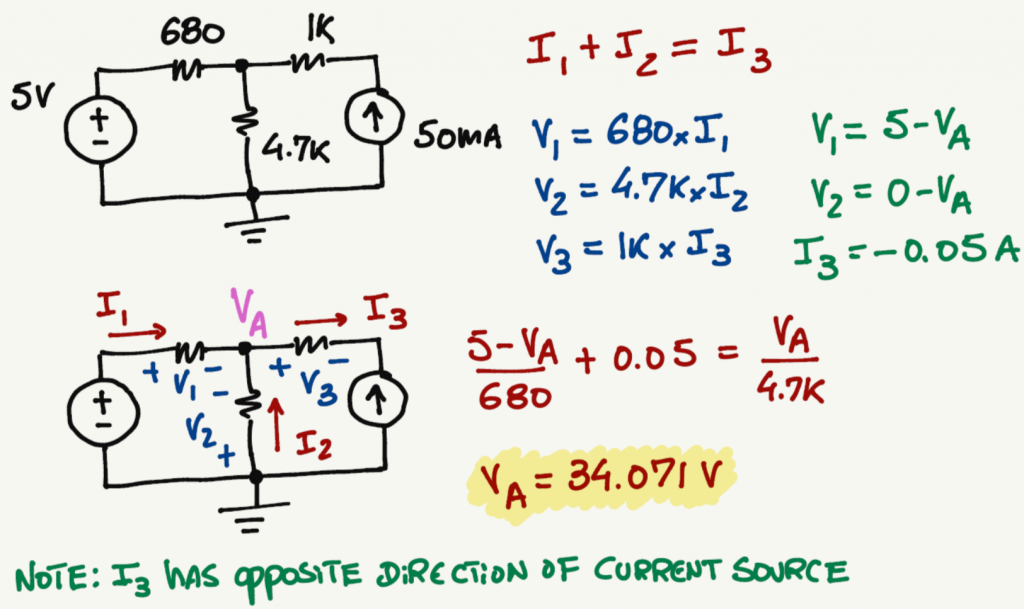 680 1K
5V
+
-
4.7K
50mA
I₁ + I₂ = I₃
V₁ = 680xI₁ V₁ = 5-VA
V₂ = 4.7KxI₂ V₂ = 0-VA
V₃ = 1K x I₃ I₃ = -0.05A
I₁ VA I₃
+ V₁ - + V₃ -
+
-
- V₂ +
I₂
5-VA/680 + 0.05 = VA/4.7K
VA = 34.071 V
NOTE: I₃ HAS OPPOSITE DIRECTION OF CURRENT SOURCE